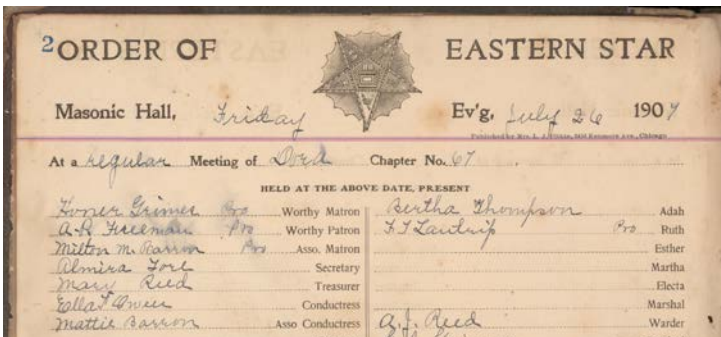 2 ORDER OF EASTERN STAR
Masonic Hall, Friday Ev'g, July 26 1907
Published by Mrs. L. J. Chicago
At a regular Meeting of Dora Chapter No. 67
HELD AT THE ABOVE DATE, PRESENT
Honer Grimes Pro Worthy Matron
A. R Freeman Pro Worthy Patron
Milton M. Barron Pro Asso. Matron
Almira Secretary
Mary Reed Treasurer
Ella F Owen Conductress
Mattie Barron Asso Conductress
Bertha Thompson Adah
F T Lantrip Pro Ruth
Esther
Martha
Electa
Marshal
A. J. Reed Warder